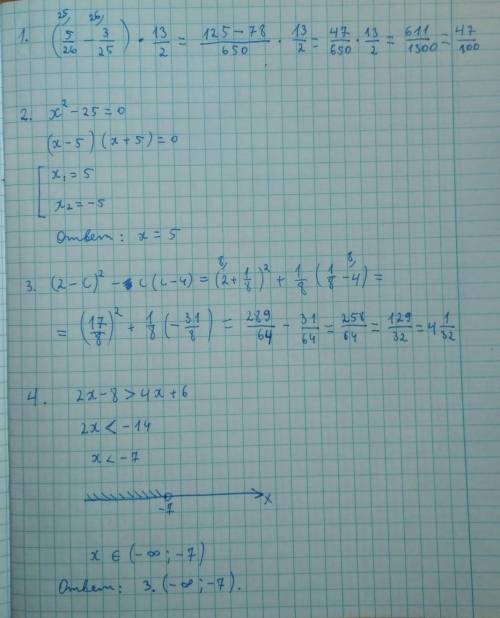 25, 26,
1. (5/26 - 3/25) · 13/2 = (125-78)/650 · 13/2 = 47/650 · 13/2 = 611/1300 = 47/100
2. x² - 25 = 0
(x-5)(x+5) = 0
[ x₁ = 5
x₂ = -5
Ответ: x = 5
3. (2-c)² - c(c-4) = (2 + 1/8)² + 1/8 (1/8 - 4) =
= (17/8)² + 1/8 (-31/8) = 289/64 - 31/64 = 258/64 = 129/32 = 4 1/32
4. 2x-8 > 4x+6
2x < -14
x < -7
-7 x
x ∈ (-∞; -7)
Ответ: 3. (-∞; -7).